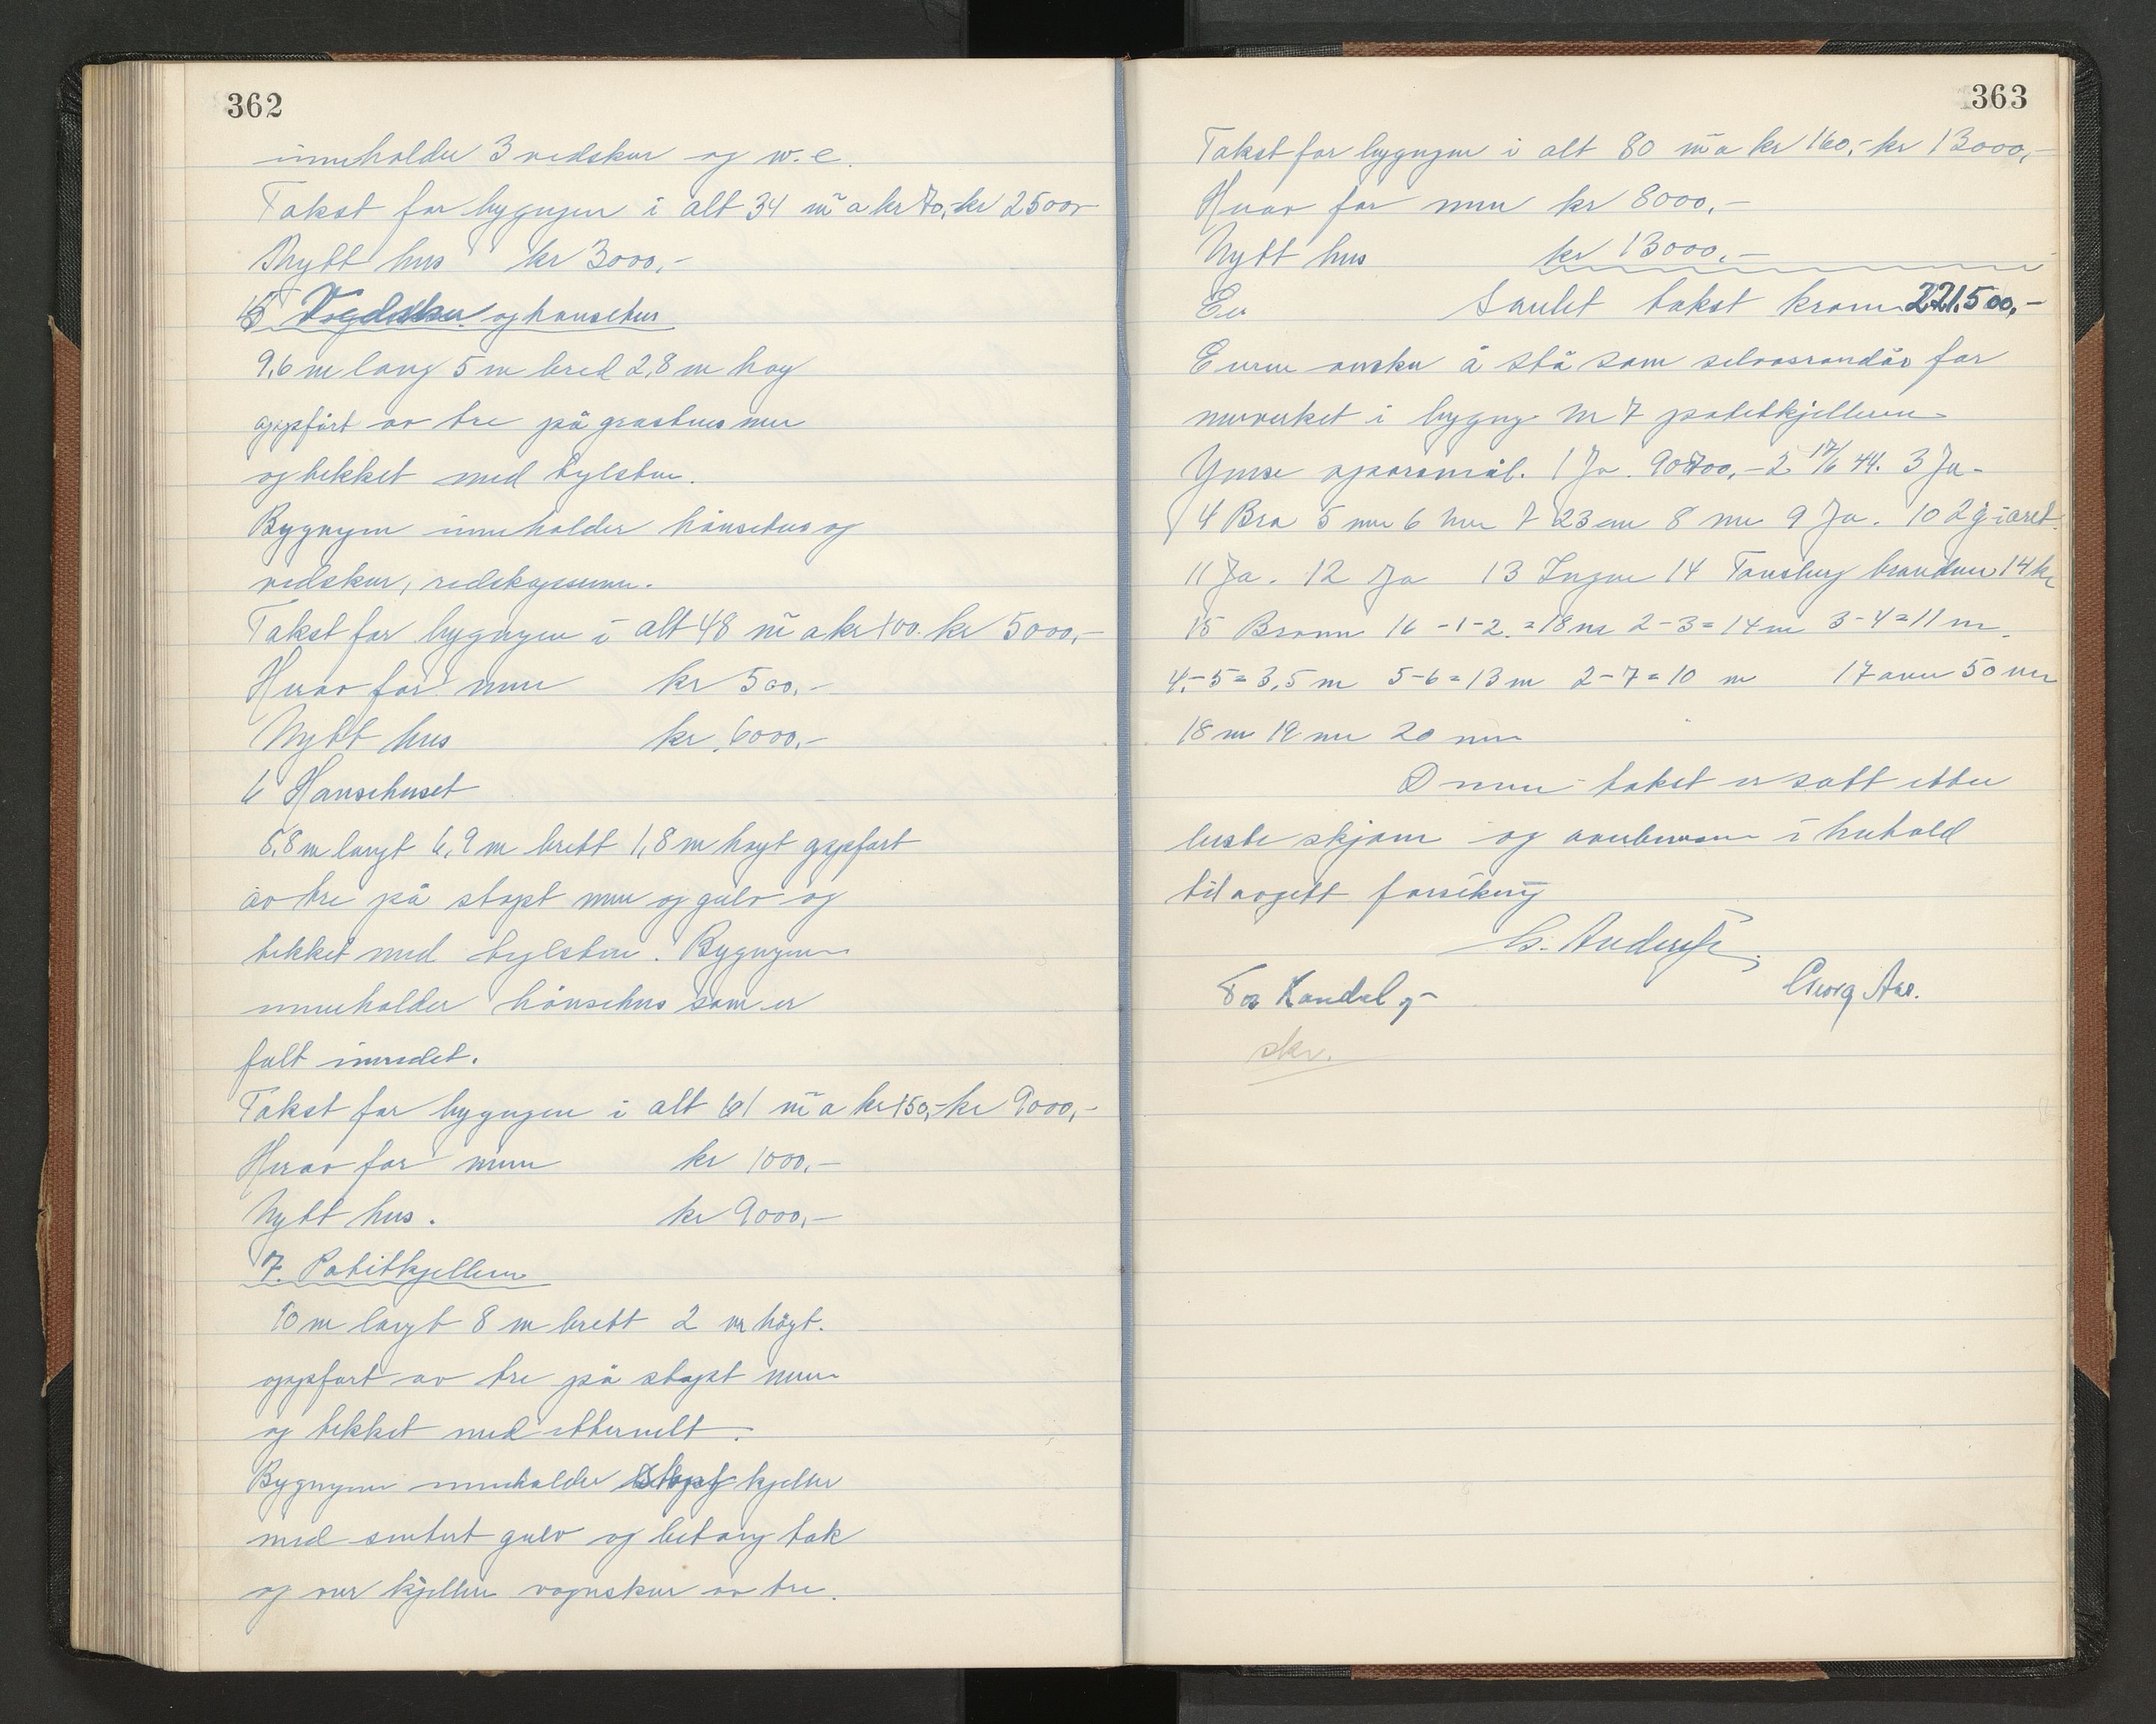 362
inneholder 3 vedskur og w.c.
Takst for bygngen i alt 34 m² a kr 70,- kr 2500,-
Nytt hus kr 3000,-
5 og hønsehus
9,6 m lang 5 m bred 2,8 m høg
oppført av tre på grastensmur
og tekket med tylsten.
Bygngen inneholder hönsehus og
vedskur, redskapsrum.
Takst for bygngen i alt 48 m² a kr 100. kr 5000,-
Herav for mur kr 500,-
Nytt hus kr 6000,-
6 Hønsehuset
8,8 m langt 6,9 m brett 1,8 m høgt oppført
av tre på støpt mur og gulv og
tekket med tylsten. Bygngen
inneholder hönsehus som er
fult inredet.
Takst for bygngen i alt 61 m² a kr 150,- kr 9000,-
Herav for mur kr 1000,-
Nytt hus. kr 9000,-
7. Potetkjelleren
10 m langt 8 m brett 2 m högt.
oppført av tre på støpt mur
og tekket med etternelt.
Bygngen inneholder støpt kjeller
med sentert gulv og betong tak
og over kjelleren vognskur av tre.
363
Takst for bygngen i alt 80 m² a kr 160,- kr 13000,-
Herav for mur kr 8000,-
Nytt hus kr 13000,-
Ei Samlet takst kroner 221.500,-
Eieren ønsker å stå som selvassurandör for
murverket i bygng nr 7 potetkjelleren
Ymse spørsmål. 1 Ja. 90700,- 2 17/6 44. 3 Ja.
4 Bra 5 nei 6 nei 7 23 cm 8 nei 9 Ja. 10 2 g i året.
11 Ja. 12 Ja 13 Ingen 14 Tønsberg brandves 14 km
15 Brønn 16 - 1-2 = 18 m 2-3 = 14 m 3-4 = 11 m
4-5 = 3,5 m 5-6 = 13 m 2-7 = 10 m 17 over 50 m
18 nei 19 nei 20 nei
Denne takst er satt etter
beste skjønn og overbevisn i henhold
til avgitt forsikring
G. Anders
Tor Kandal Georg Aas.
skr.